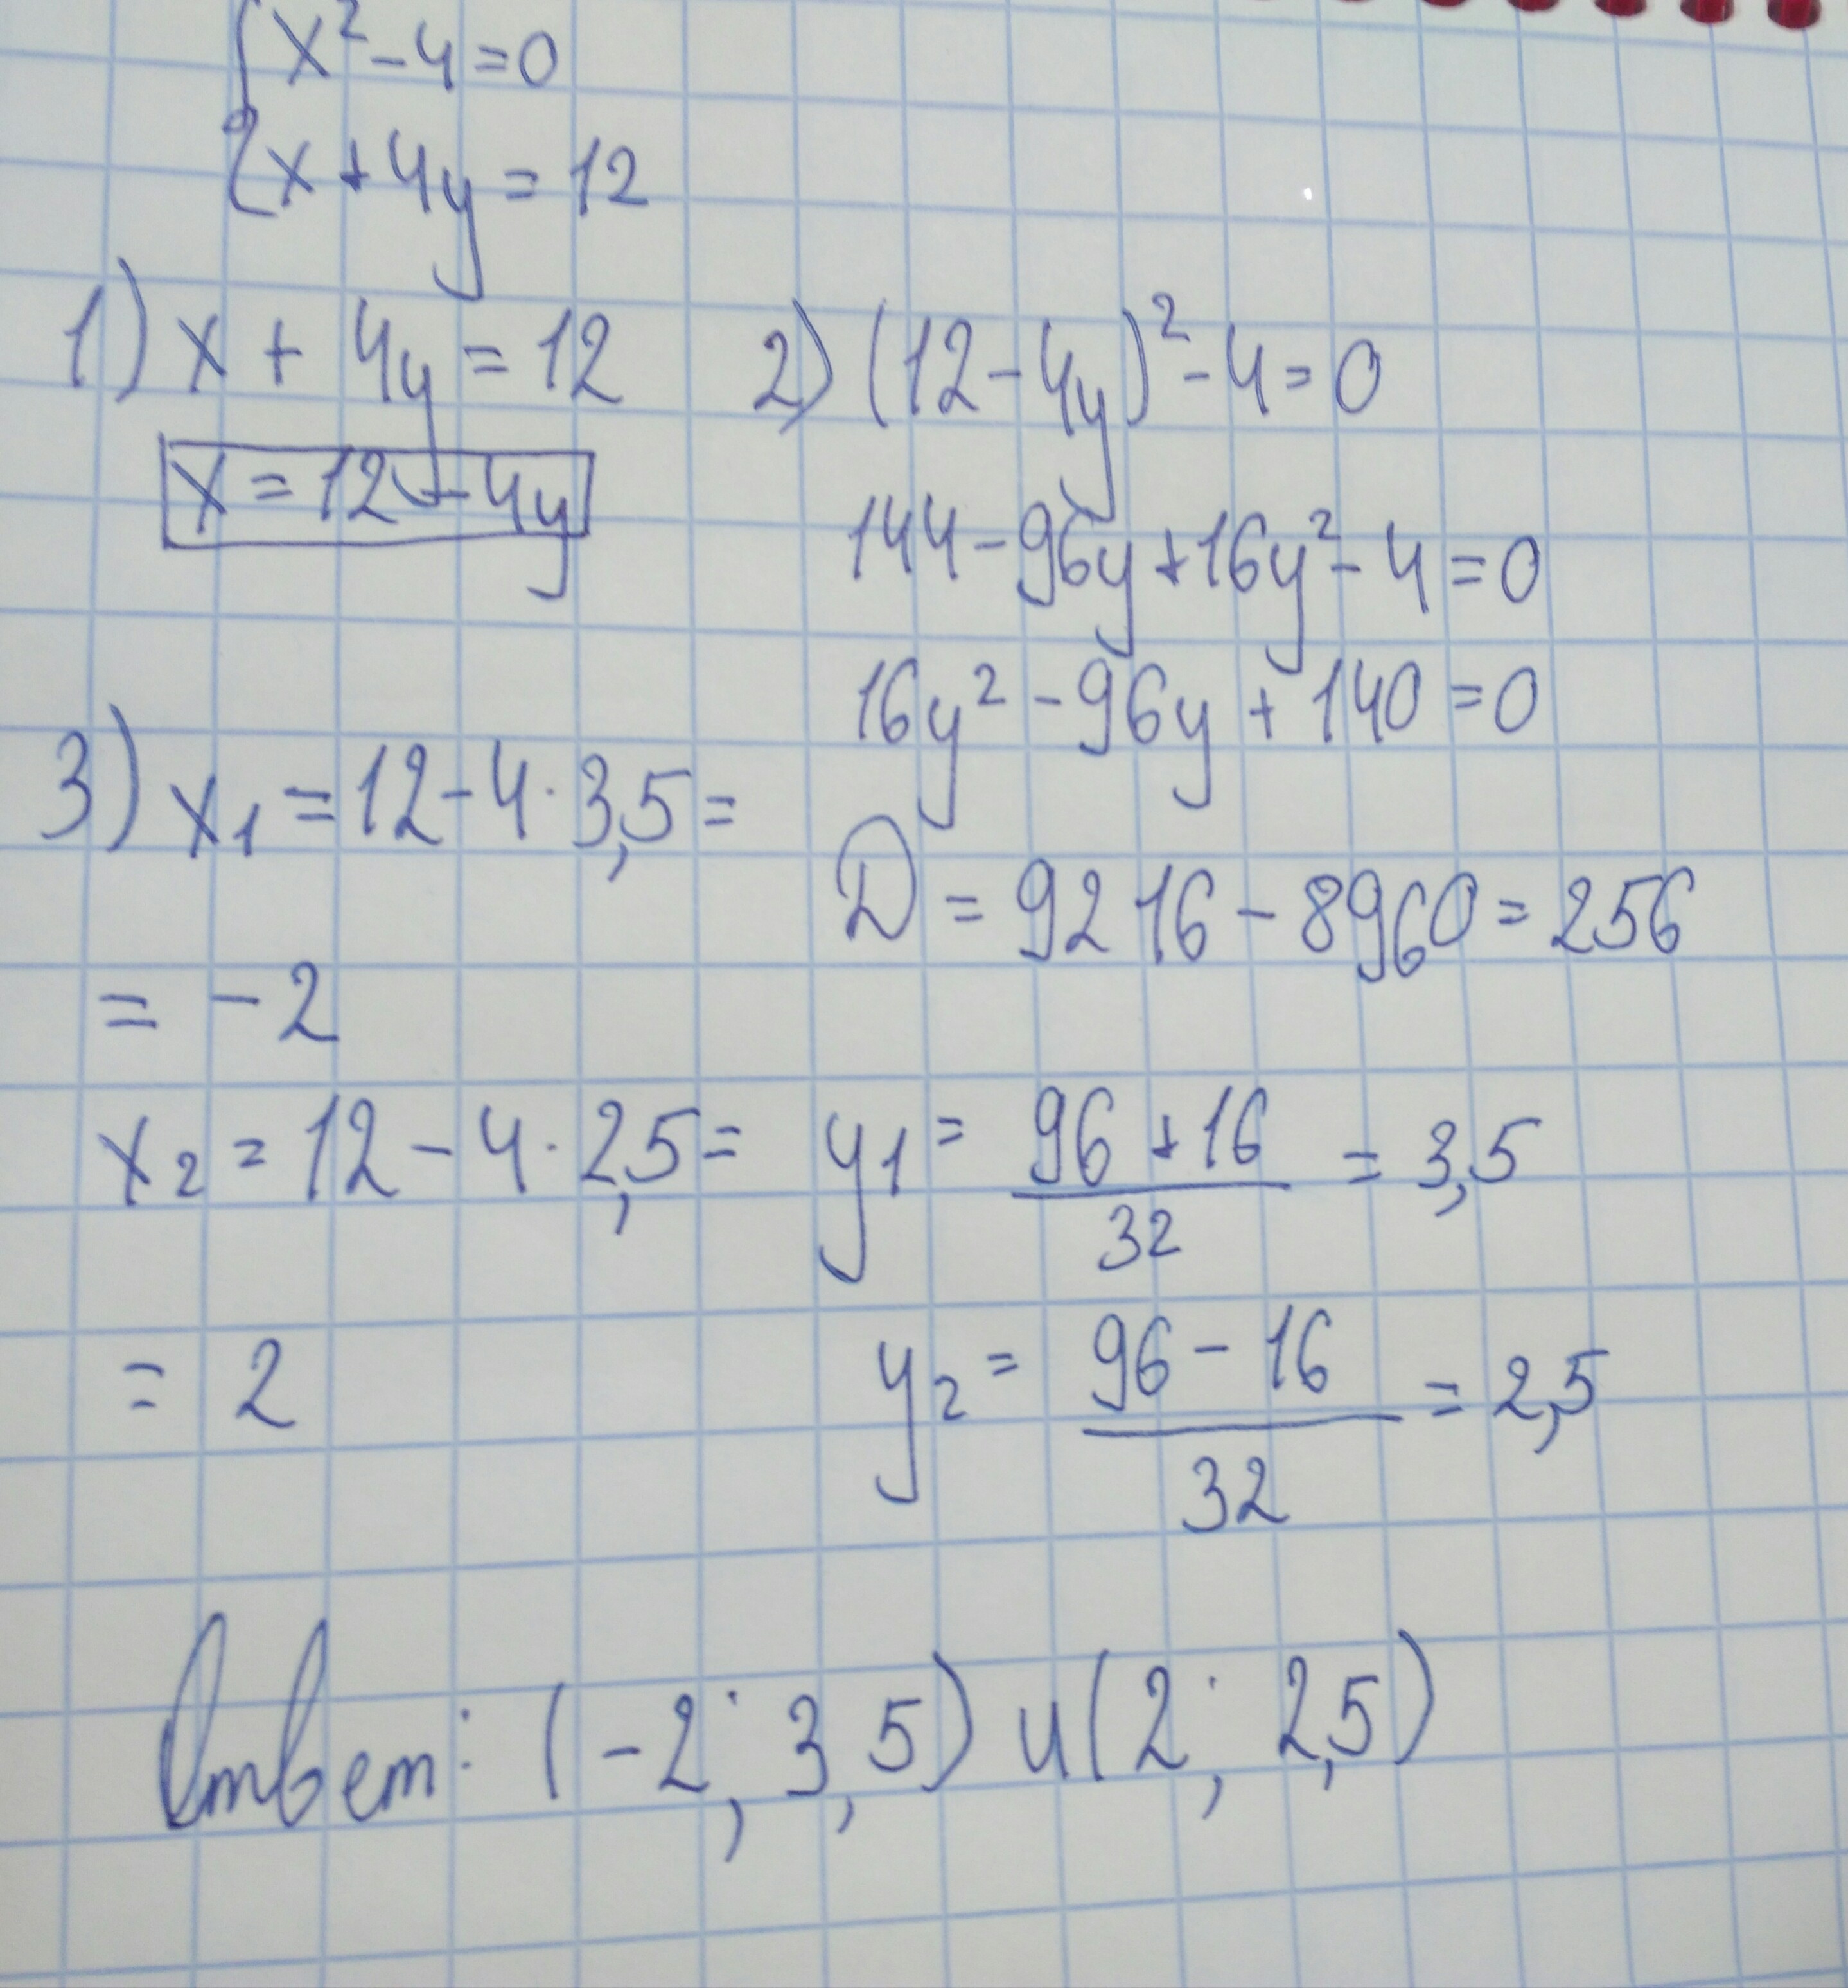 x² - 4 = 0
x + 4y = 12
1) x + 4y = 12
x = 12 - 4y
2) (12 - 4y)² - 4 = 0
144 - 96y + 16y² - 4 = 0
16y² - 96y + 140 = 0
D = 9216 - 8960 = 256
y₁ = (96 + 16)/32 = 3,5
y₂ = (96 - 16)/32 = 2,5
3) x₁ = 12 - 4 · 3,5 =
= -2
x₂ = 12 - 4 · 2,5 =
= 2
Ответ: (-2; 3,5) и (2; 2,5)